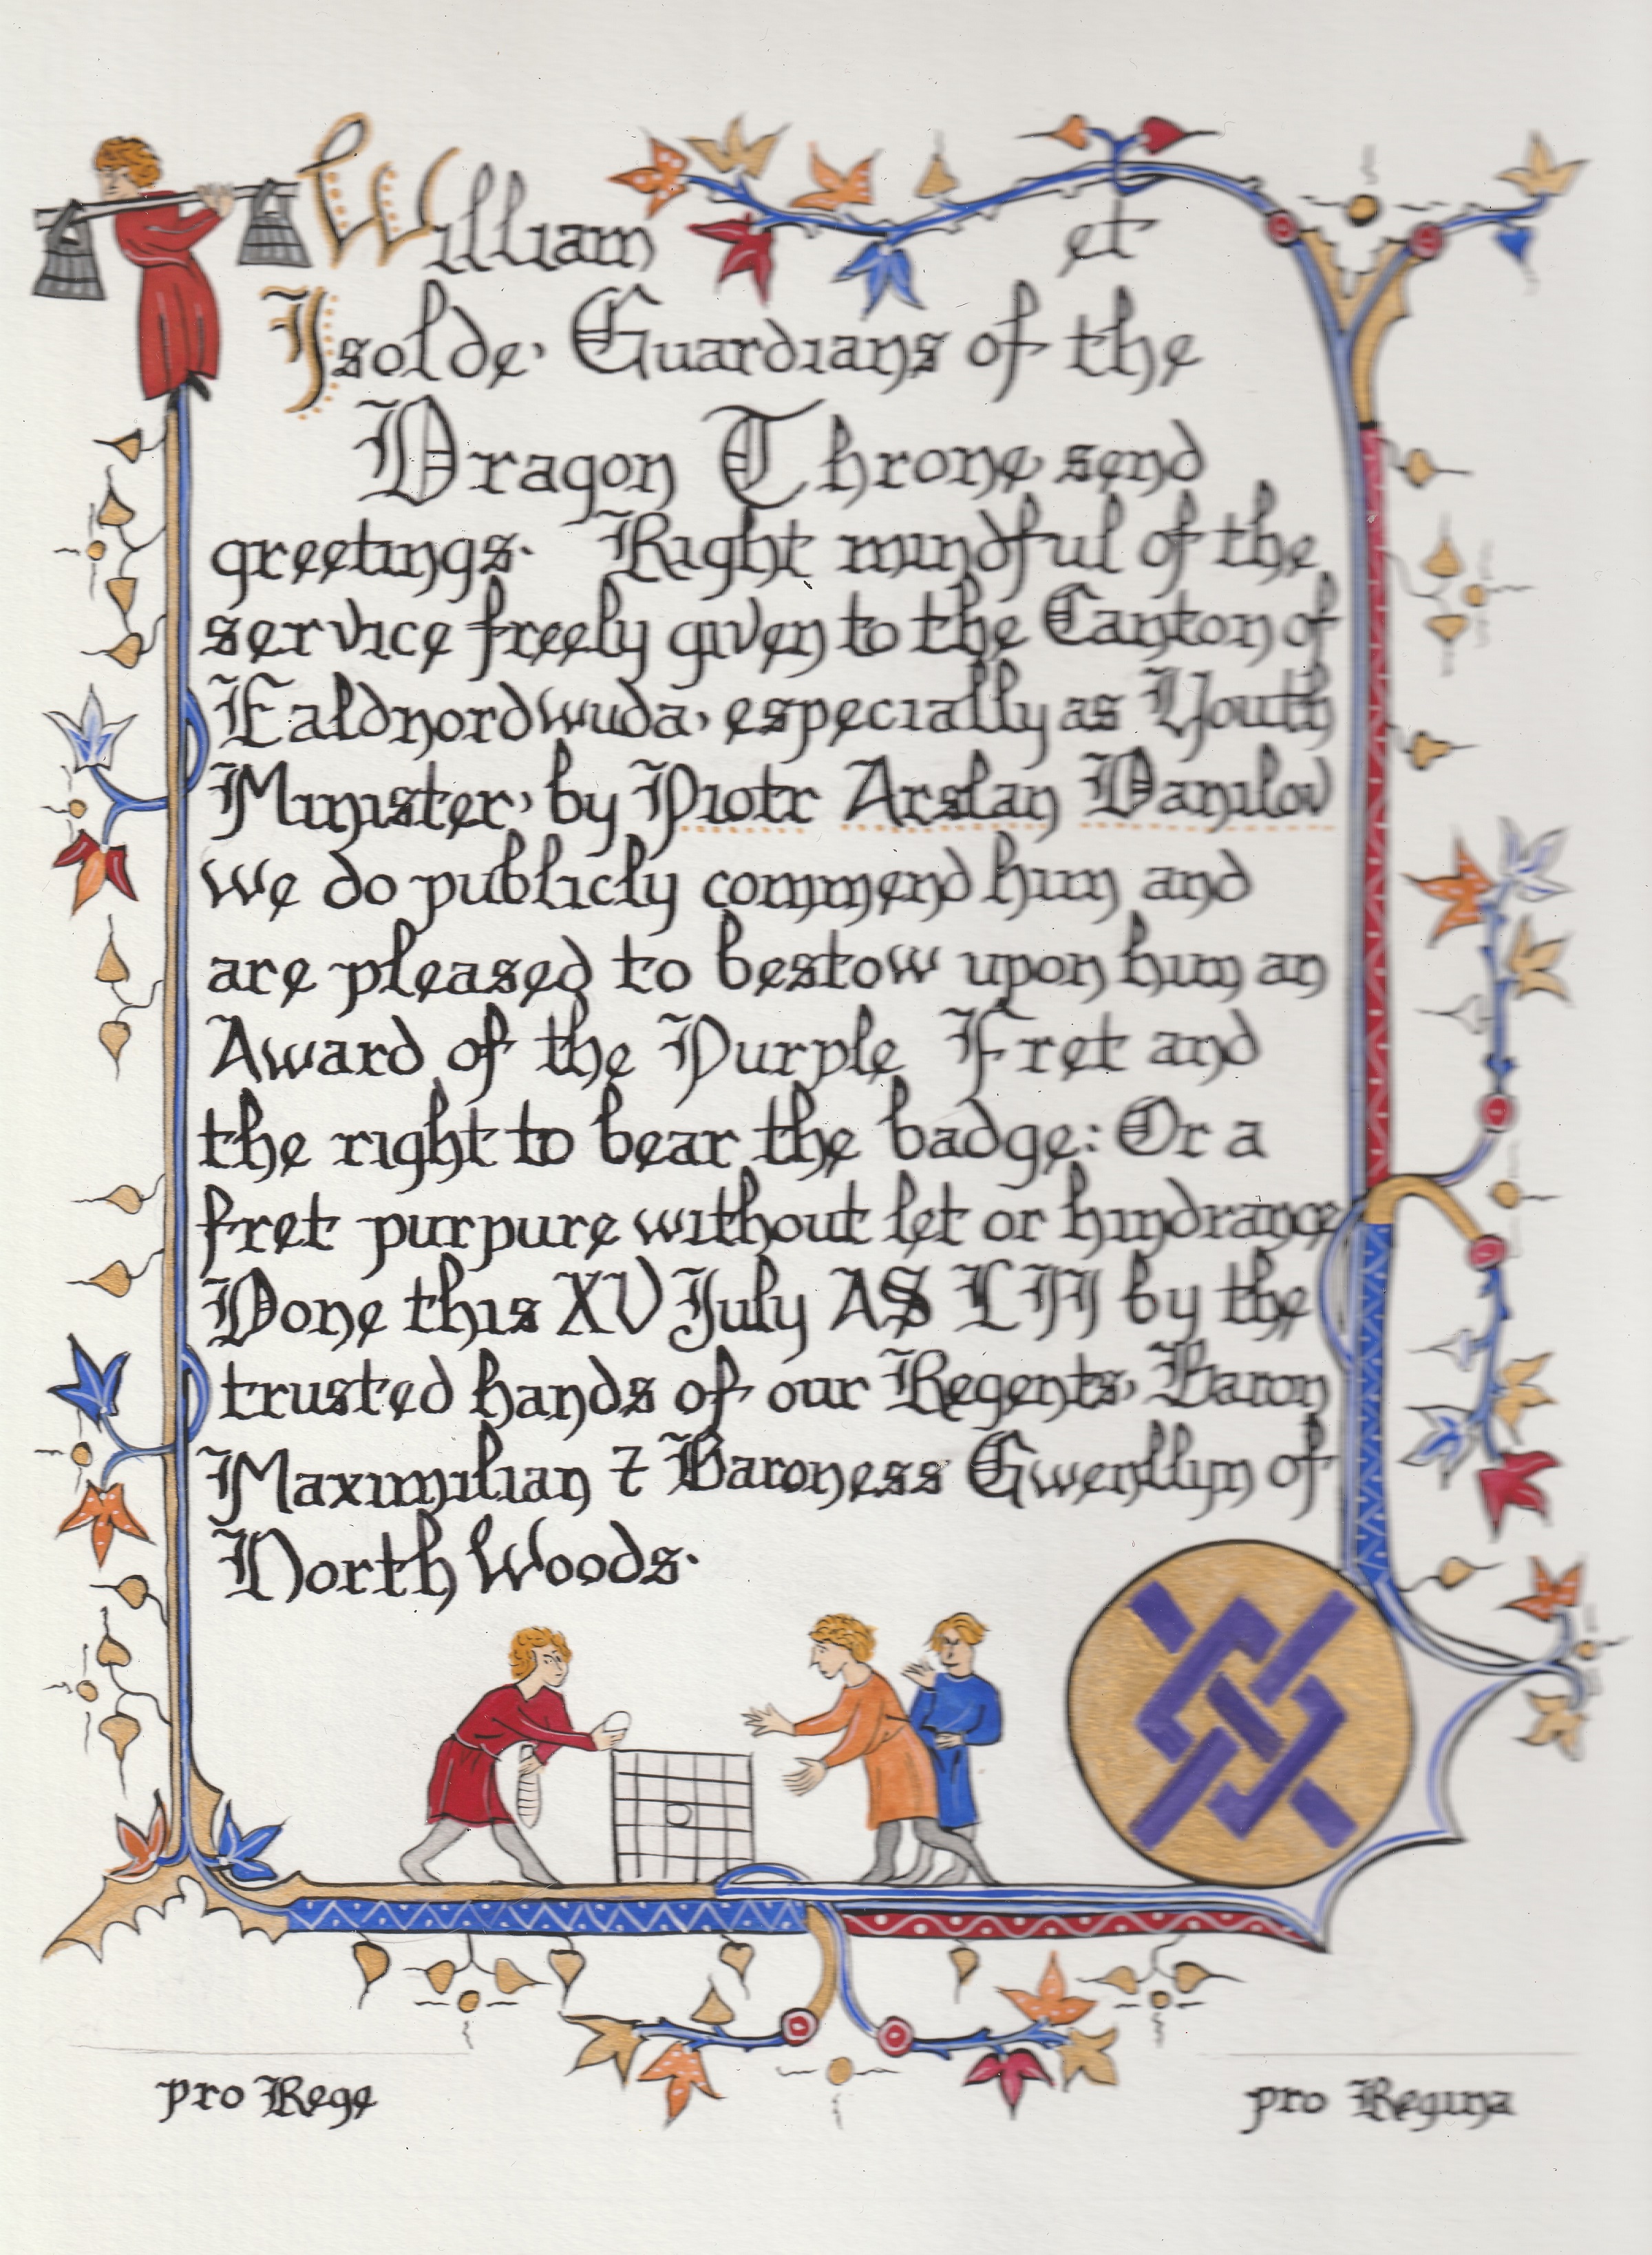 William et
Isolde, Guardians of the
Dragon Throne send
greetings. Right mindful of the
service freely given to the Canton of
Ealdnordwuda, especially as Youth
Minister, by Piotr Arslan Danilov
we do publicly commend him and
are pleased to bestow upon him an
Award of the Purple Fret and
the right to bear the badge: Or a
fret purpure without let or hindrance
Done this XV July AS LII by the
trusted hands of our Regents, Baron
Maximilian ⁊ Baroness Gwenllyn of
North Woods.
pro Rege
pro Regina